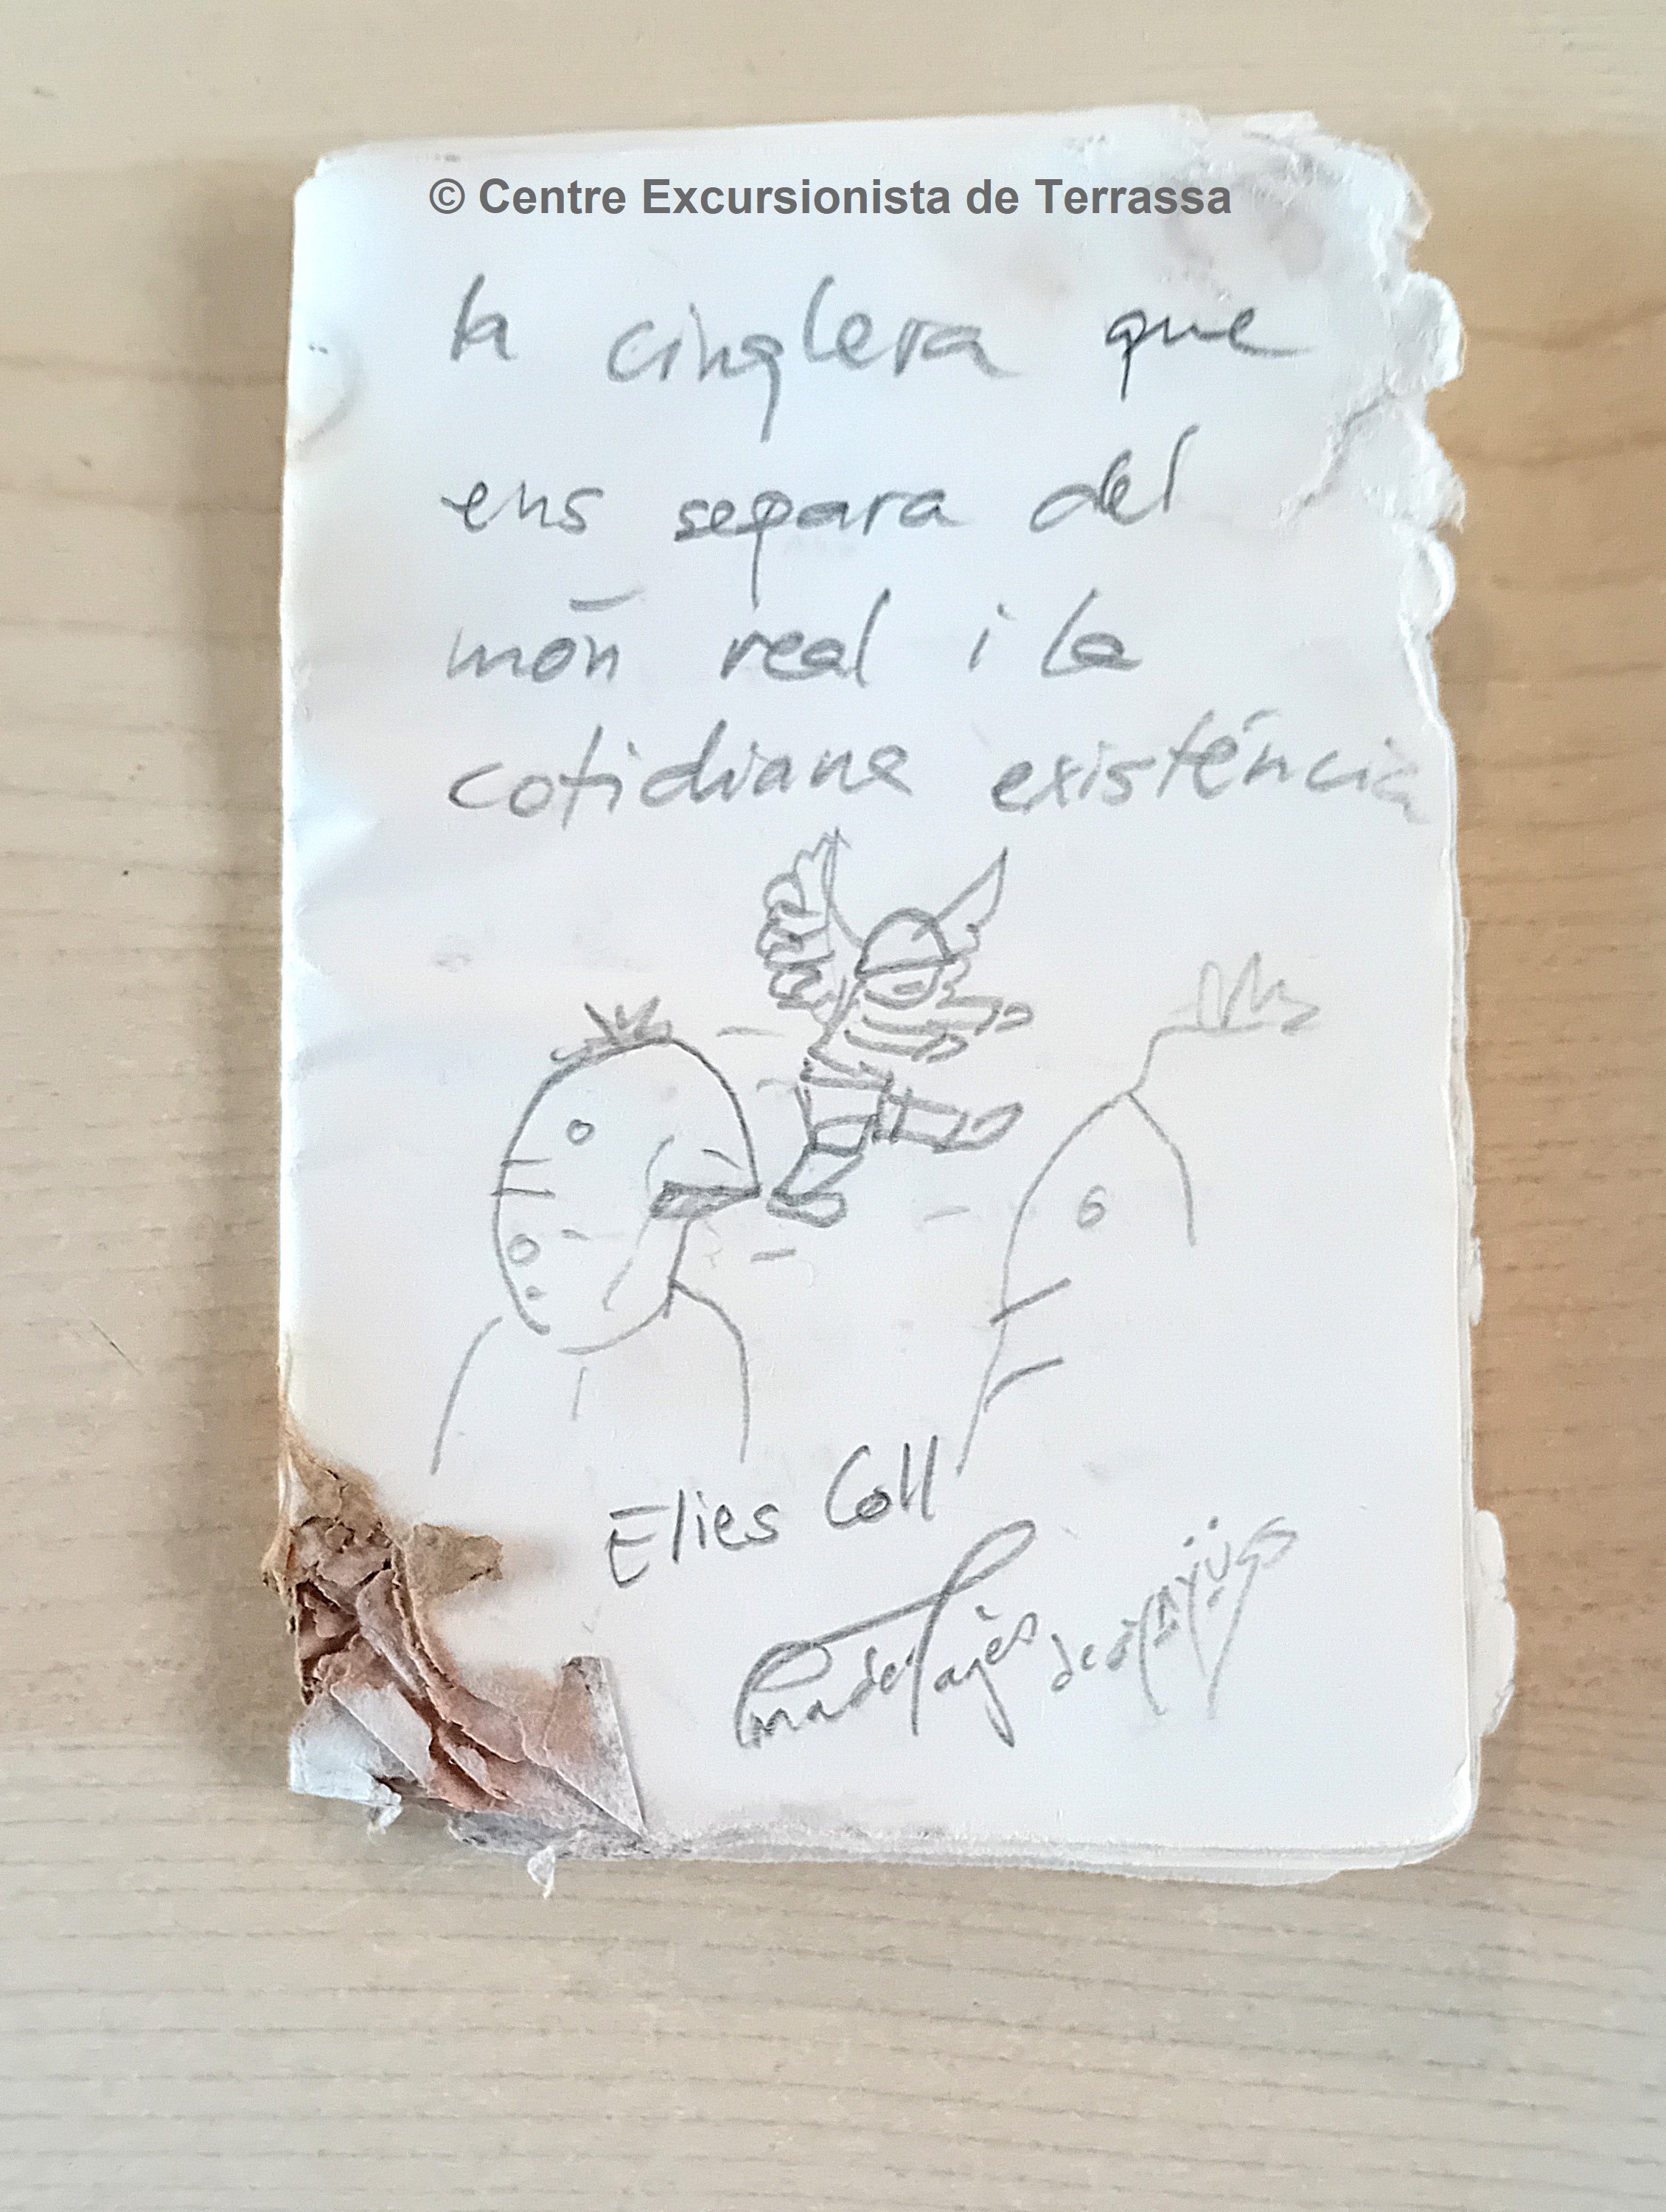 © Centre Excursionista de Terrassa
la cinglera que
ens separa del
món real i la
cotidiana existència
Elies Coll